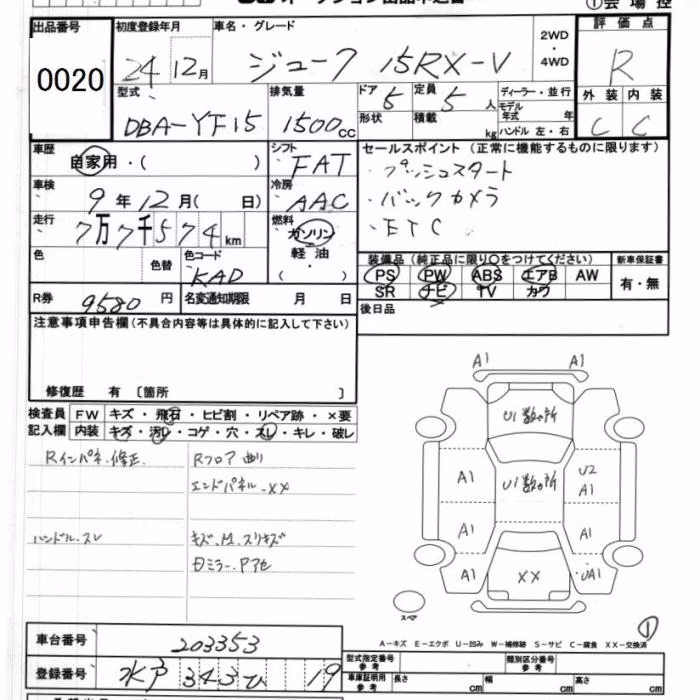 ①会場控
出品番号 初度登録年月 車名・グレード 2WD・4WD 評価点
0020 24 12月 ジューク 15RX-V R
型式 排気量 ドア 5 定員 5人 ディーラー・並行 外装 内装
DBA-YF15 1500cc 形状 積載 kg モデル年式 年 ハンドル 左・右 C C
車歴 シフト セールスポイント(正常に機能するものに限ります)
自家用・( ) FAT ・プッシュスタート
車検 冷房 ・バックカメラ
9年12月( 日) AAC ・ETC
走行 燃料
7万7千574km ガソリン
軽油・
( )
色 色替 色コード 装備品(純正品に限り○をつけてください) 新車保証書
KAD PS PW ABS エアB AW 有・無
SR ナビ TV カワ
R券 9580円 名変通知期限 月 日 後日品
注意事項申告欄(不具合内容等は具体的に記入して下さい)
修復歴 有〔箇所 〕
検査員 FW キズ・飛石・ヒビ割・リペア跡・×要
記入欄 内装 キズ・汚レ・コゲ・穴・スレ・キレ・破レ
Rインパネ.修正. Rフロア曲り
エンドパネル.××
ハンドル.スレ キズ.凹.スリキズ
A1 A1
U1数ヶ所
A1 U1数ヶ所 U2 A1
A1 A1
A1 ×× UA1
スペア
①
A-キズ E-エクボ U-凹み W-補修跡 S-サビ C-腐食 XX-交換済
車台番号 203353
登録番号 水戸 343 ひ 19
型式指定番号参考 類別区分番号参考
車庫証明用参考 長さ cm 幅 cm 高さ cm